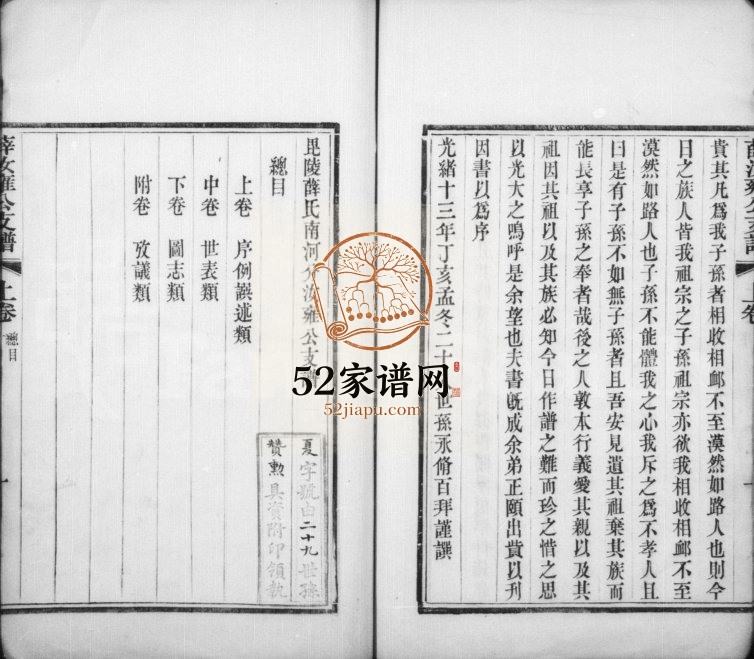 貴其凡爲我子孫者相收相䘏不至漠然如路人也則今
日之族人皆我祖宗之子孫祖宗亦欲我相收相䘏不至
漠然如路人也子孫不能體我之心我斥之爲不孝人且
曰是有子孫不如無子孫者且吾安見遺其祖棄其族而
能長享子孫之奉者哉後之人敦本行義愛其親以及其
祖因其祖以及其族必知今日作譜之難而珍之惜之思
以光大之嗚呼是余望也夫書旣成余弟正頤出貲以刊
因書以爲序
光緒十三年丁亥孟冬二十 世孫永脩百拜謹譔
上卷
毘陵薛氏南河分汝雍公支
總目
上卷 序例誤述類
中卷 世表類
下卷 圖志類
附卷 攷議類
夏字號由二十九世孫
贊勲具資附印領執
薛汝雍公支譜
上卷
總目
一
52家谱网
52jiapu.com